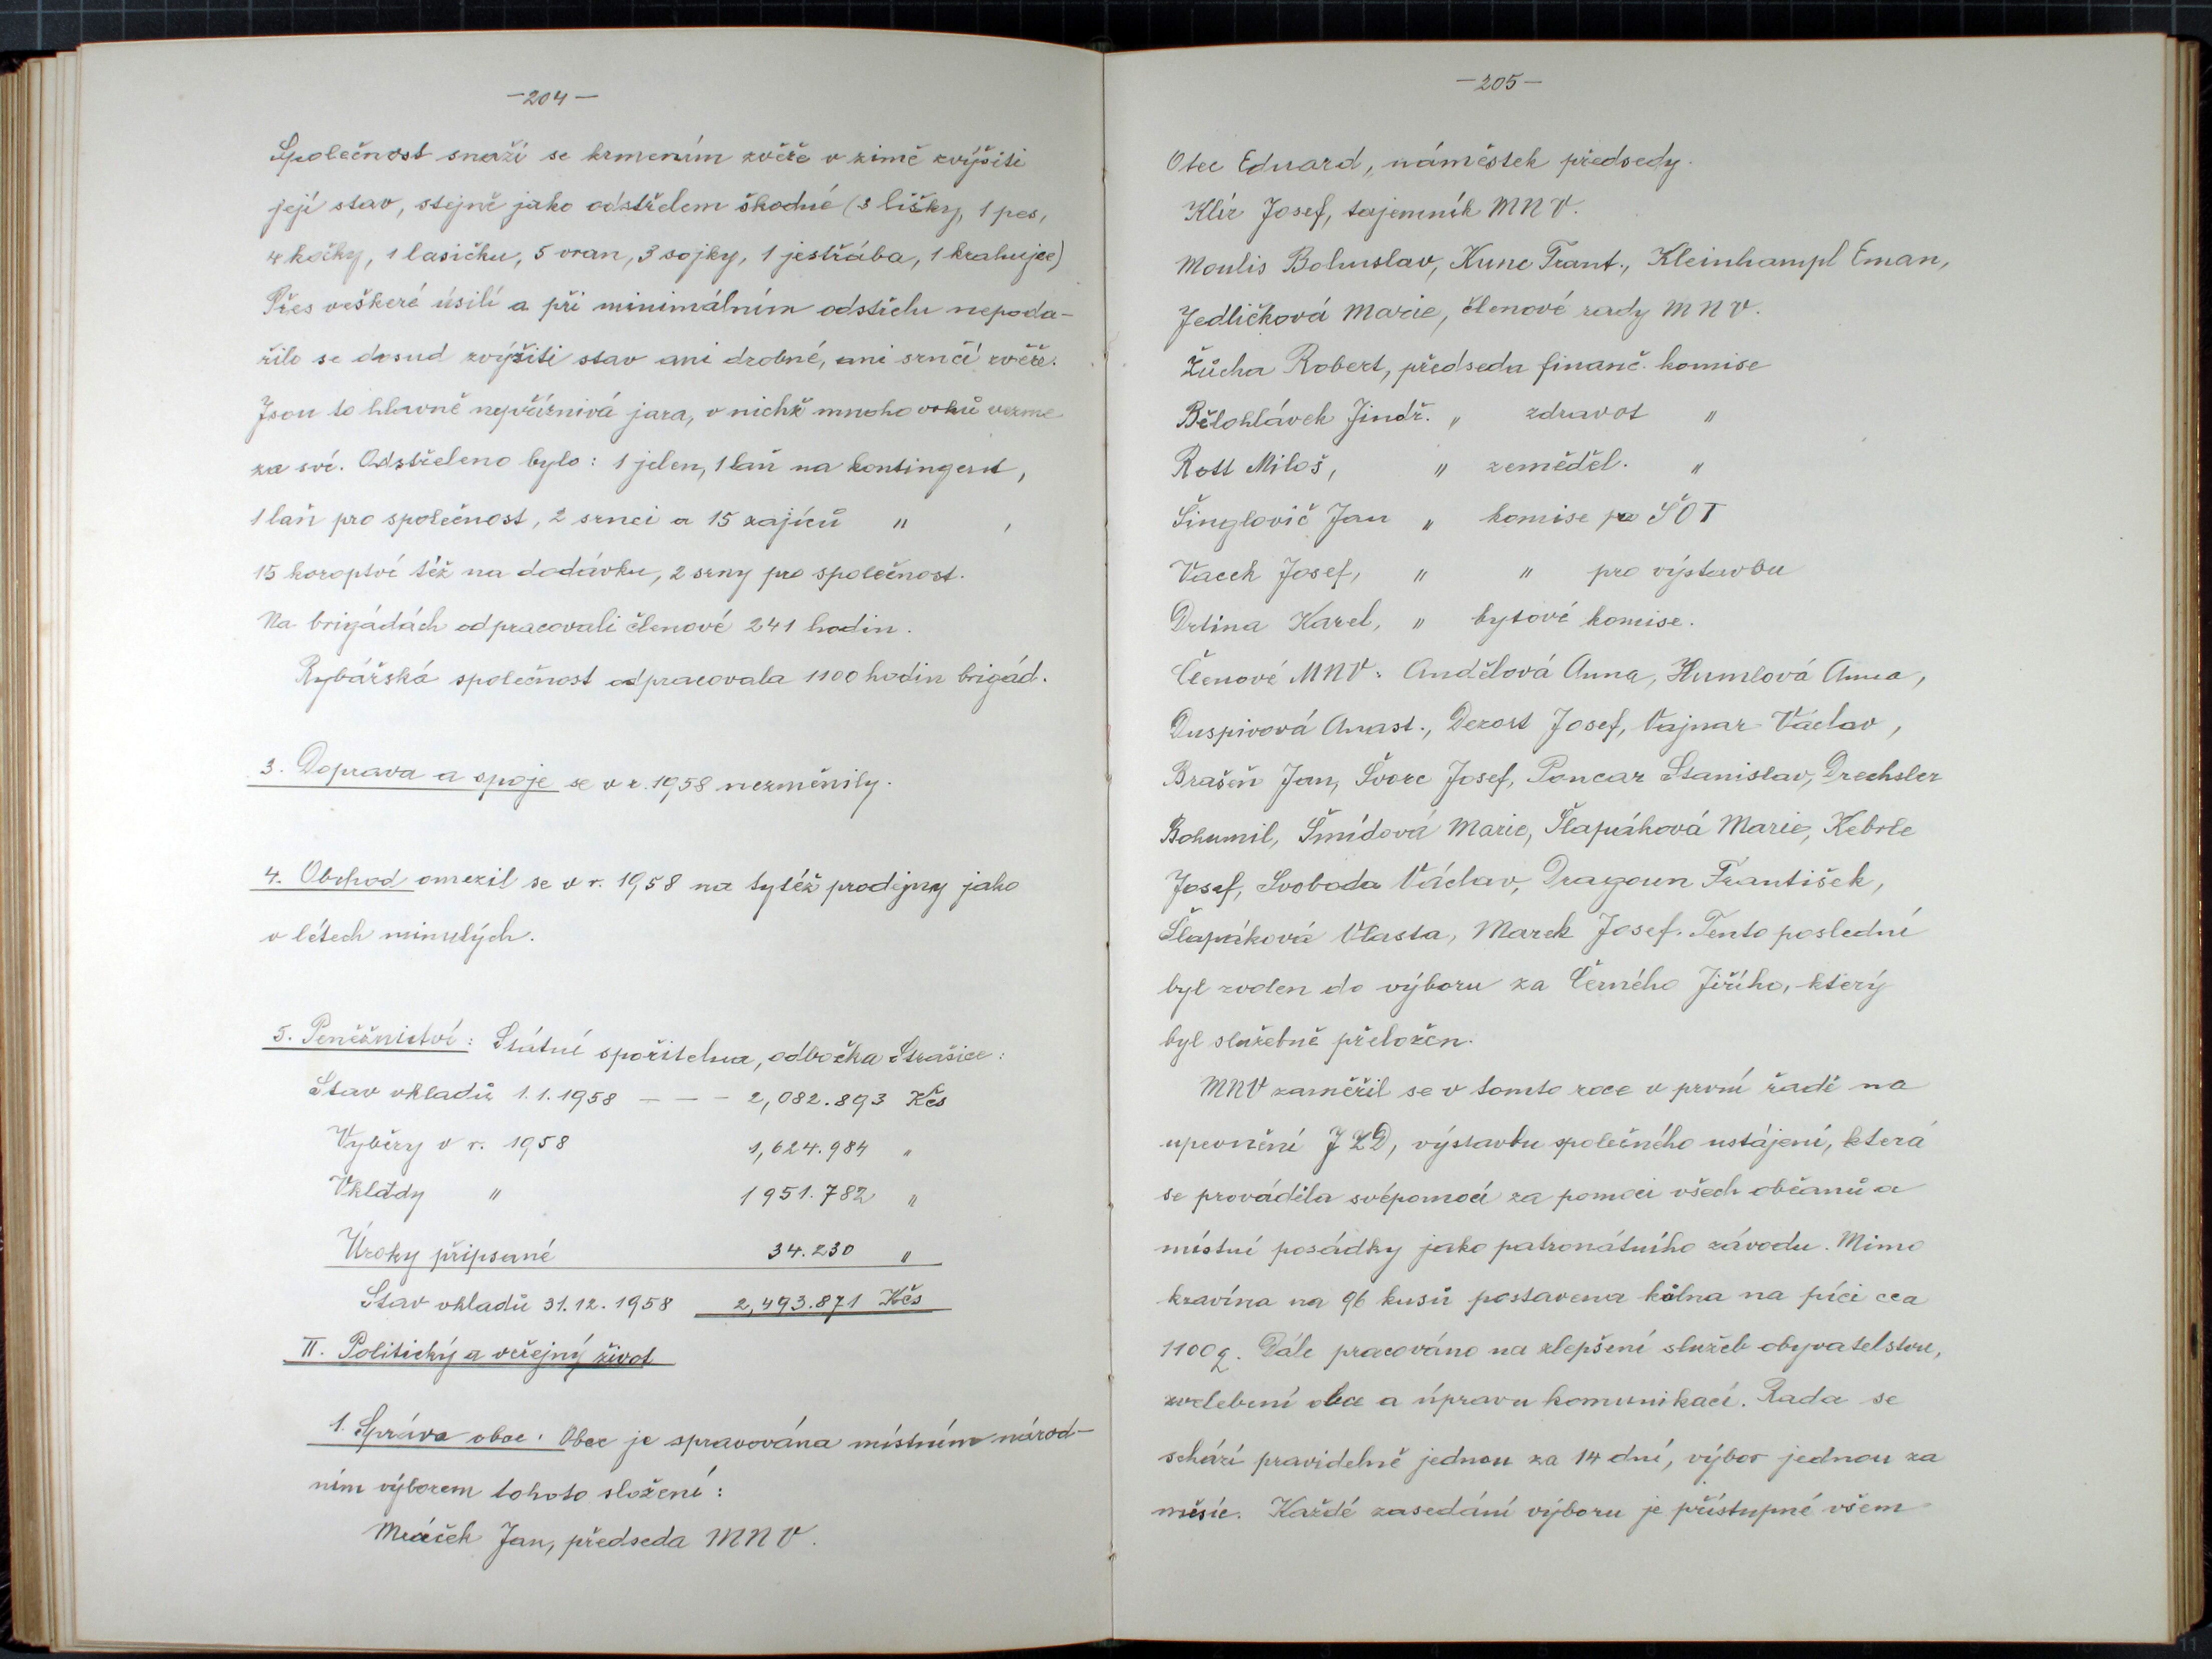 -204-
Společnost snaží se krmením zvěře v zimě zvýšiti
její stav, stejně jako odstřelem škodné (3 lišky, 1 pes,
4 kočky, 1 lasičku, 5 vran, 3 sojky, 1 jestřába, 1 krahujce)
Přes veškeré úsilí a při minimálním odstřelu nepoda-
řilo se dosud zvýšiti stav ani drobné, ani srnčí zvěře.
Jsou to hlavně nepříznivá jara, v nichž mnoho vrhů vezme
za své. Odstřeleno bylo: 1 jelen, 1 laň na kontingent,
1 laň pro společnost, 2 srnci a 15 zajíců " ,
15 koroptví též na dodávku, 2 srny pro společnost.
Na brigádách odpracovali členové 241 hodin.
Rybářská společnost odpracovala 1100 hodin brigád.
3. Doprava a spoje se v r. 1958 nezměnily.
4. Obchod omezil se v r. 1958 na tytéž prodejny jako
v létech minulých.
5. Peněžnictví: Státní spořitelna, odbočka Strašice:
Stav vkladů 1.1.1958 - - - 2,082.893 Kčs
Výběry v r. 1958 1,624.984 "
Vklady " 1951.782 "
Úroky připsané 34.230 "
Stav vkladů 31.12.1958 2,493.871 Kčs
II. Politický a veřejný život
1. Správa obce: Obec je spravována místním národ-
ním výborem tohoto složení:
Mráček Jan, předseda MNV.
-205-
Otec Eduard, náměstek předsedy.
Klír Josef, tajemník MNV.
Moulis Bohuslav, Kunc Frant., Kleinhampl Eman,
Jedličková Marie, členové rady MNV.
Žůcha Robert, předseda finanč. komise
Bělohlávek Jindř. " zdravot "
Rott Miloš, " zeměděl. "
Šinglovič Jan " komise pro ŠOT
Vacek Josef, " " pro výstavbu
Drtina Karel, " bytové komise.
Členové MNV: Andělová Anna, Humlová Anna,
Duspivová Anast., Dezort Josef, Vajnar Václav,
Brašeň Jan, Švorc Josef, Poncar Stanislav, Drechsler
Bohumil, Šmídová Marie, Šlapáková Marie, Kebrle
Josef, Svoboda Václav, Dragoun František,
Šlapáková Vlasta, Marek Josef. Tento poslední
byl zvolen do výboru za Černého Jiřího, který
byl služebně přeložen.
MNV zaměřil se v tomto roce v první řadě na
upevnění JZD, výstavbu společného ustájení, která
se prováděla svépomocí za pomoci všech občanů a
místní posádky jako patronátního závodu. Mimo
kravína na 96 kusů postavena kůlna na píci cca
1100 q. Dále pracováno na zlepšení služeb obyvatelstvu,
zvelebení obce a úpravu komunikací. Rada se
schází pravidelně jednou za 14 dní, výbor jednou za
měsíc. Každé zasedání výboru je přístupné všem